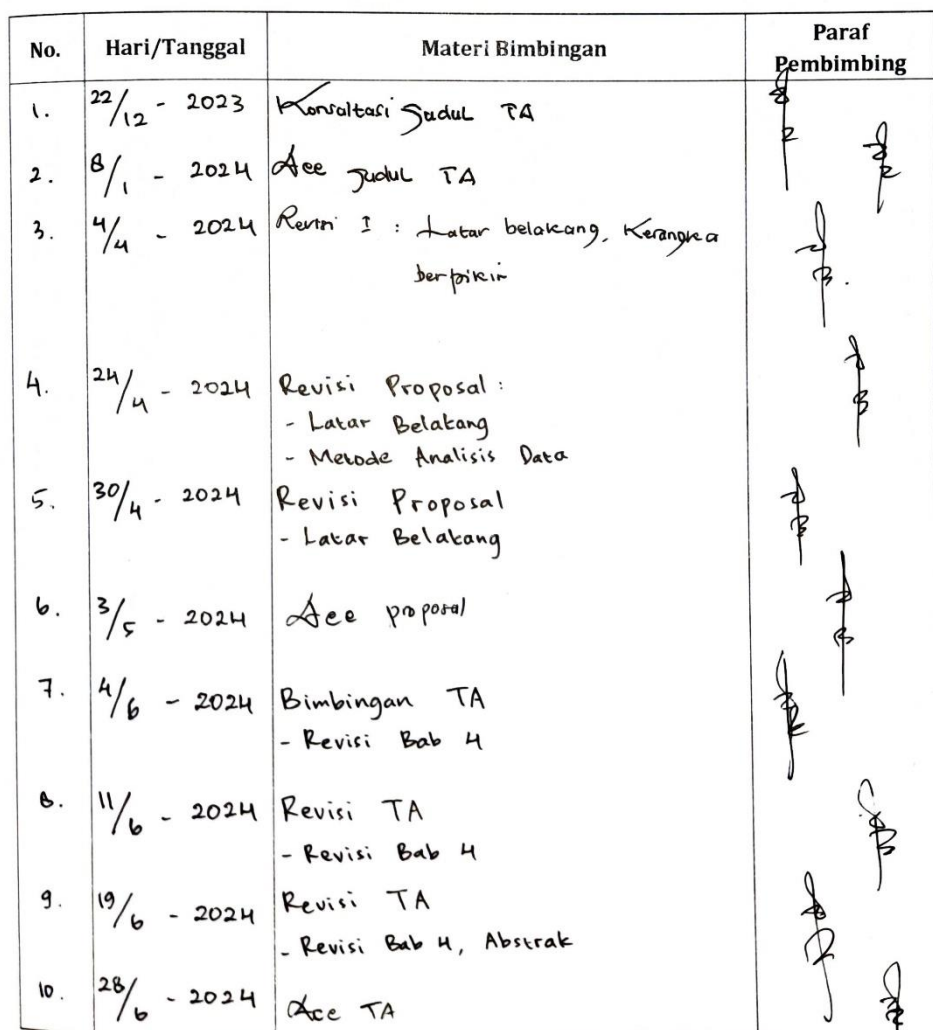 No. Hari/Tanggal Materi Bimbingan Paraf Pembimbing
1. 22/12 - 2023 Konsultasi Judul TA
2. 8/1 - 2024 Acc Judul TA
3. 4/4 - 2024 Revisi I : Latar belakang, Kerangka
berpikir
4. 24/4 - 2024 Revisi Proposal :
- Latar Belakang
- Metode Analisis Data
5. 30/4 - 2024 Revisi Proposal
- Latar Belakang
6. 3/5 - 2024 Acc proposal
7. 4/6 - 2024 Bimbingan TA
- Revisi Bab 4
8. 11/6 - 2024 Revisi TA
- Revisi Bab 4
9. 19/6 - 2024 Revisi TA
- Revisi Bab 4, Abstrak
10. 28/6 - 2024 Acc TA